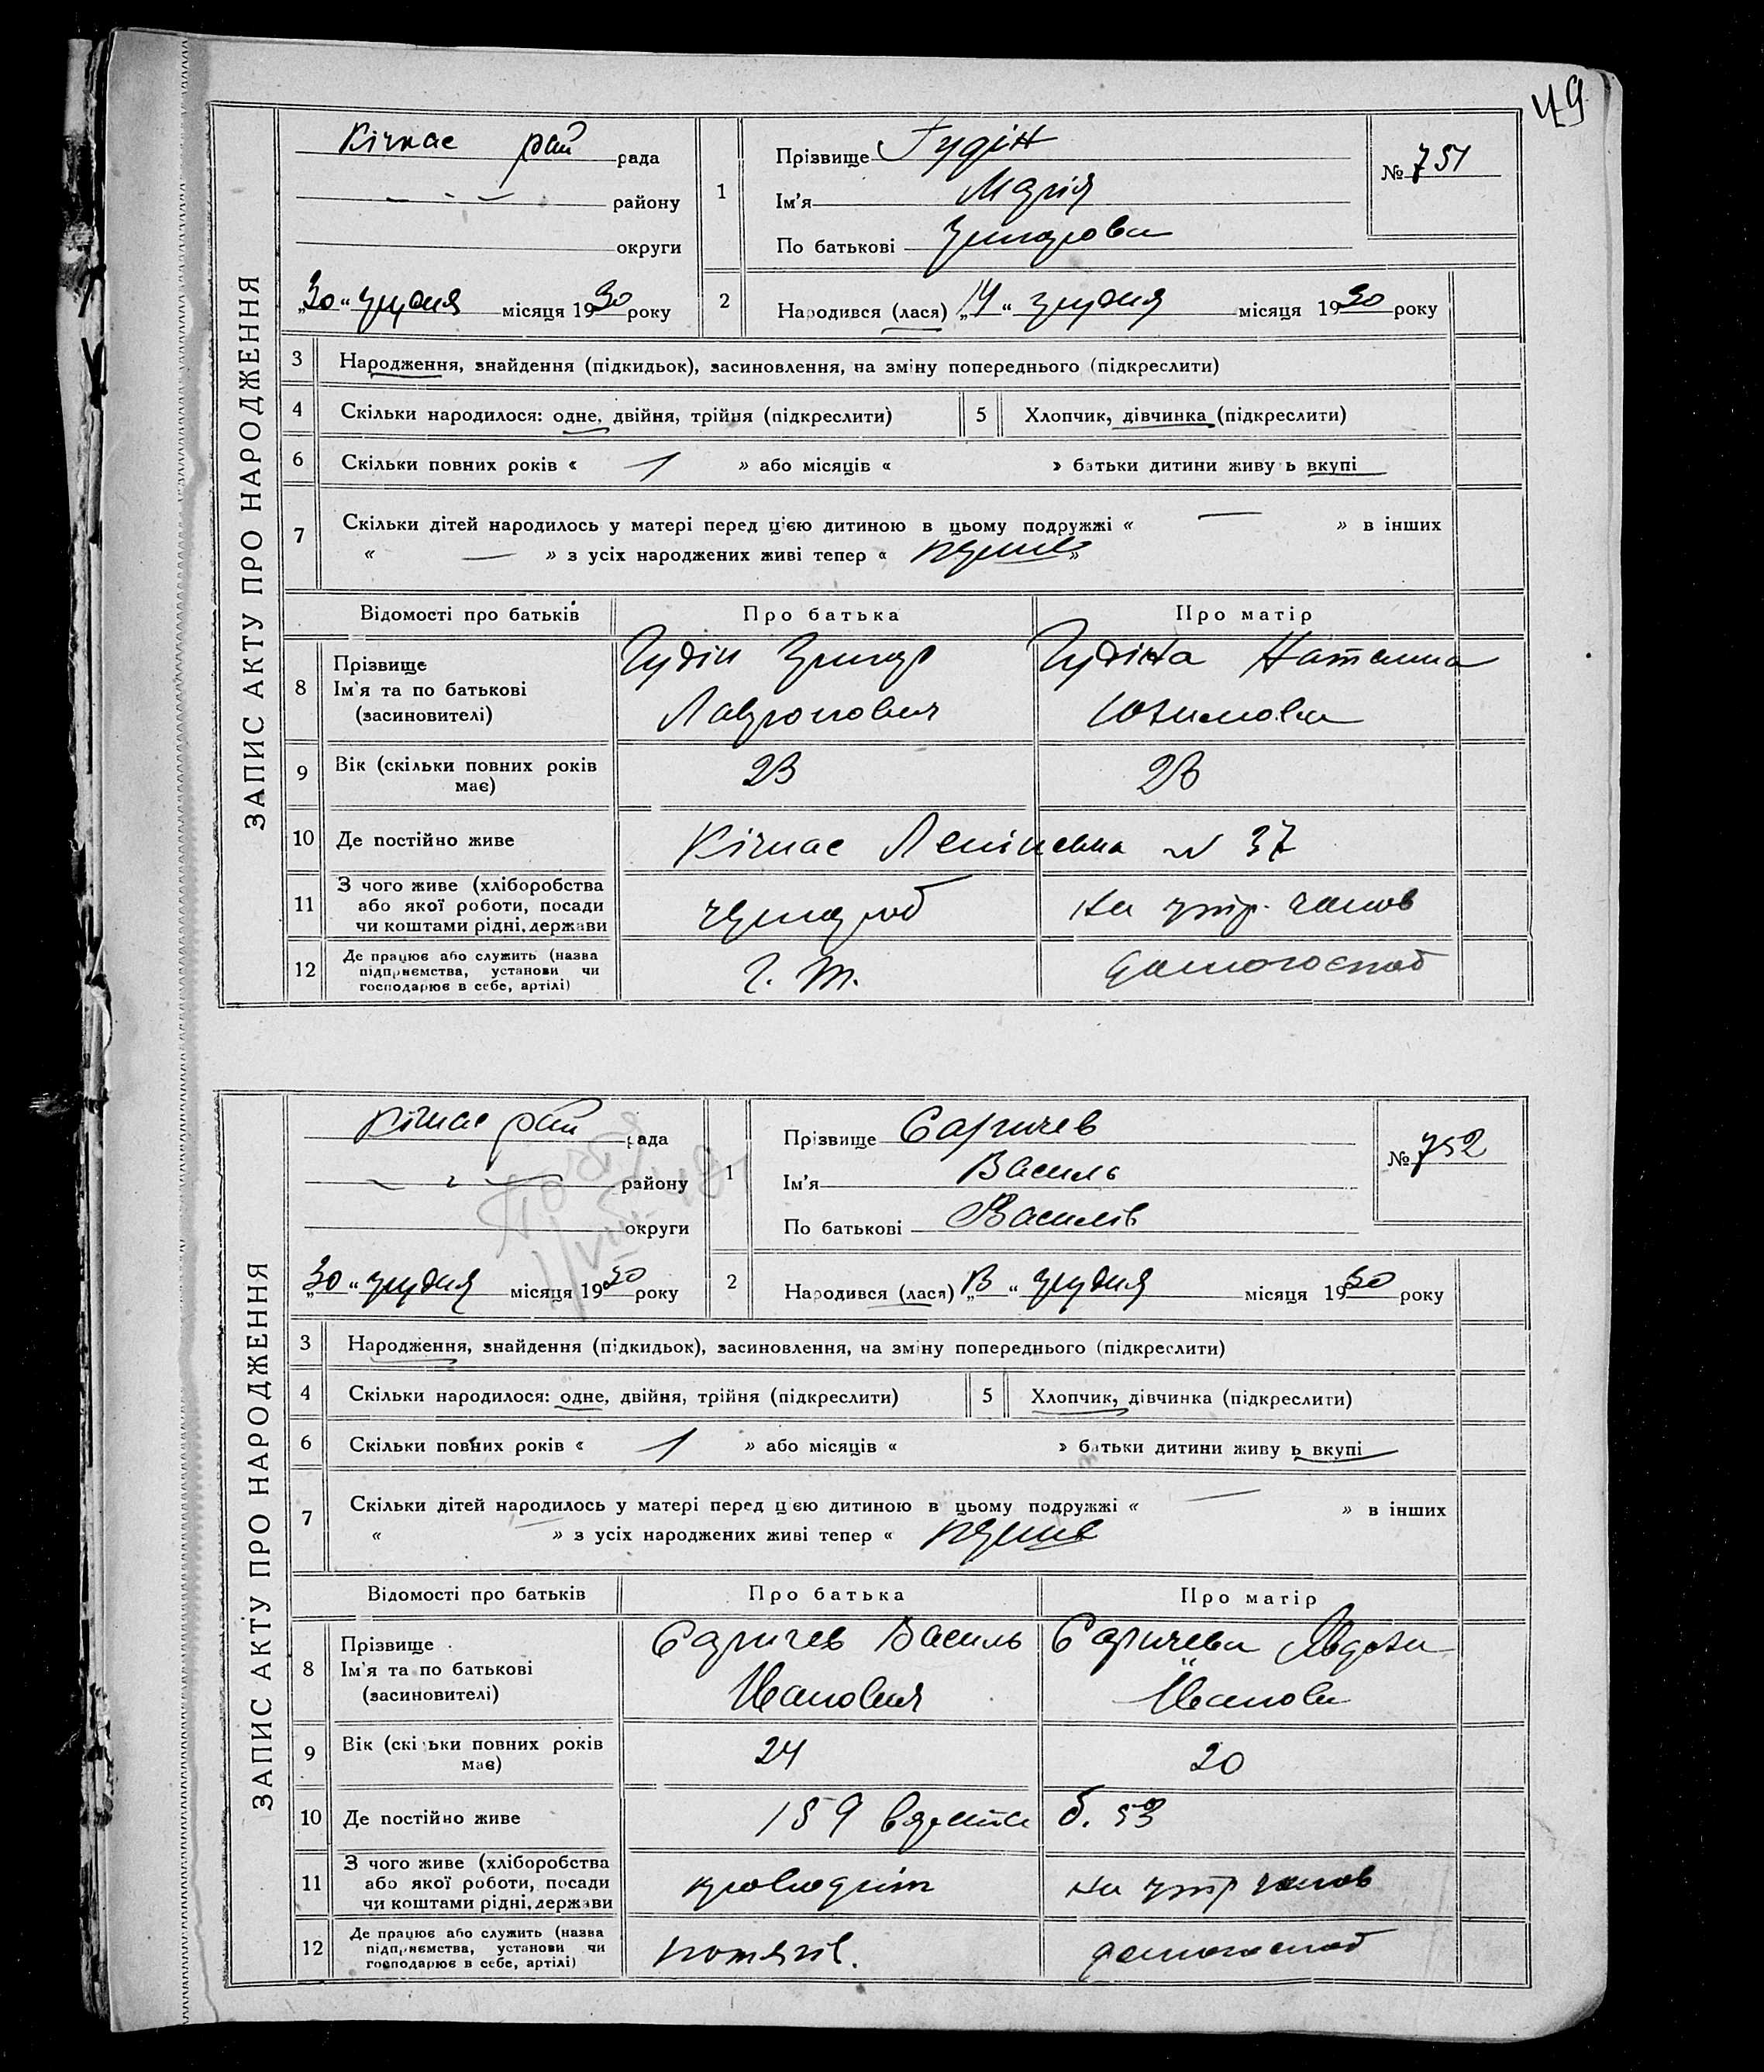 49
ЗАПИС АКТУ ПРО НАРОДЖЕННЯ
Кічкас рай рада
району
округи
„30“ грудня місяця 1930 року
1 Прізвище Гудін
Ім'я Марія
По батькові
№ 751
2 Народився (лася) „14“ грудня місяця 1930 року
3 Народження, знайдення (підкидьок), засиновлення, на зміну попереднього (підкреслити)
4 Скільки народилося: одне, двійня, трійня (підкреслити) 5 Хлопчик, дівчинка (підкреслити)
6 Скільки повних років « 1 » або місяців « » батьки дитини живу ь вкупі
7 Скільки дітей народилось у матері перед цією дитиною в цьому подружжі « — » в інших
« — » з усіх народжених живі тепер « »
Відомості про батьків Про батька Про матір
8 Прізвище Гудін Гудіна
Ім'я та по батькові
(засновителі)
9 Вік (скільки повних років 23 23
має)
10 Де постійно живе Кічкас Ленінська № 37
11 З чого живе (хліборобства
або якої роботи, посади чорнороб на утр. чолов
чи коштами рідні, держави
12 Де працює або служить (назва
підприємства, установи чи Г. Т. домогоспод
господарює в себе, артілі)
ЗАПИС АКТУ ПРО НАРОДЖЕННЯ
Кічкас рай рада
району
округи
„30“ грудня місяця 1930 року
1 Прізвище Саричев
Ім'я Василь
По батькові Василів
№ 752
2 Народився (лася) „13“ грудня місяця 1930 року
3 Народження, знайдення (підкидьок), засиновлення, на зміну попереднього (підкреслити)
4 Скільки народилося: одне, двійня, трійня (підкреслити) 5 Хлопчик, дівчинка (підкреслити)
6 Скільки повних років « 1 » або місяців « » батьки дитини живу ь вкупі
7 Скільки дітей народилось у матері перед ц єю дитиною в цьому подружжі « — » в інших
« » з усіх народжених живі тепер «
Відомості про батьків Про батька Про матір
8 Прізвище Саричев Василь Саричева
Ім'я та по батькові Іванович Іванова
(засиновителі)
9 Вік (скі ьки повних років 24 20
має)
10 Де постійно живе 159 б. 53
11 З чого живе (хліборобства
або якої роботи, посади на утр чолов
чи коштами рідні, держави
12 Де працює або служить (назва
підприємства, установи чи домогоспод
господарює в себе, артілі)